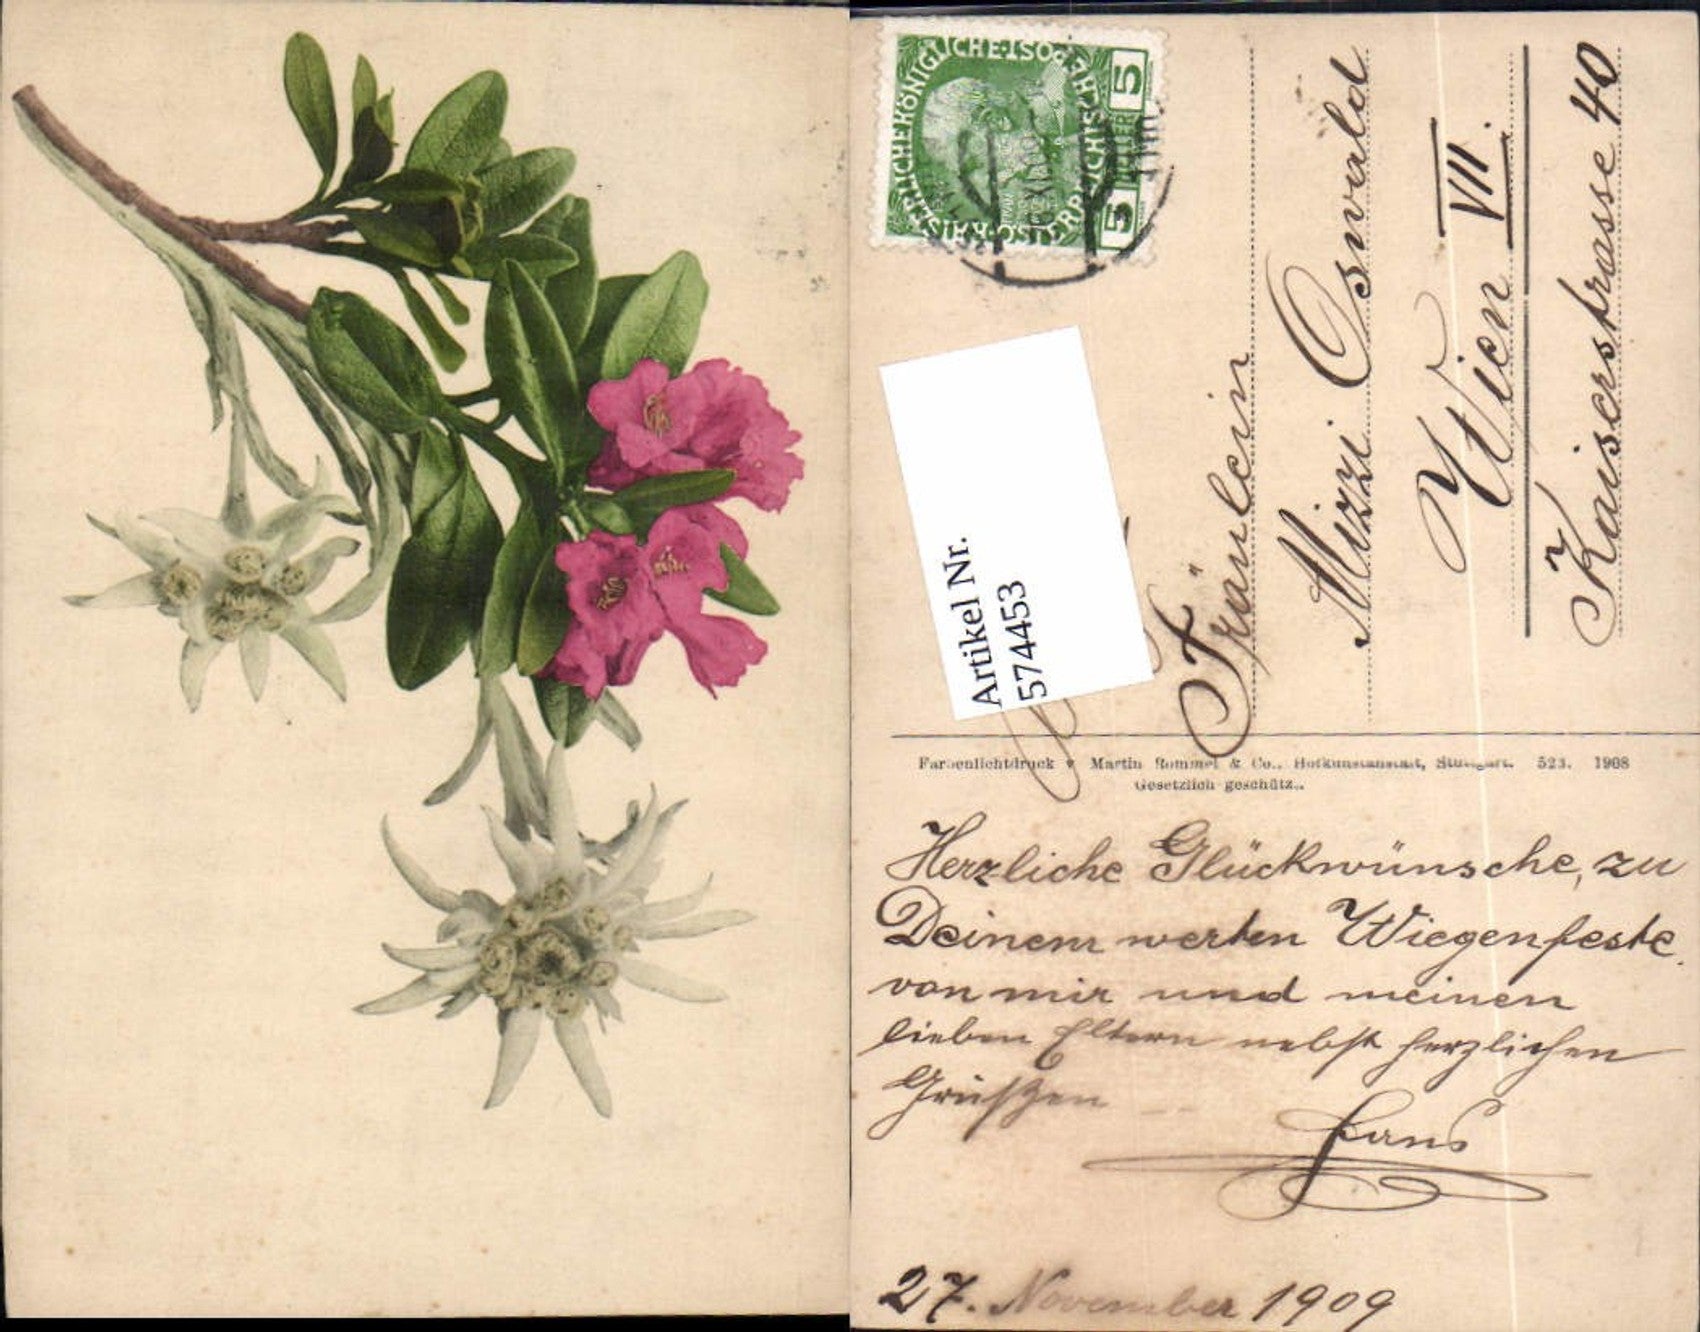 5
5
HELLER
Artikel Nr.
574453
Fräulein
Mizzi Oswald
Wien VII.
Kaiserstrasse 40
Farbenlichtdruck v Martin Rommel & Co., Hofkunstanstalt, Stuttgart. 523. 1908
Gesetzlich geschütz..
Herzliche Glückwünsche, zu
Deinem werten Wiegenfeste
von mir und meinen
lieben Eltern nebst herzlichen
Grüßen
Hans
27. November 1909